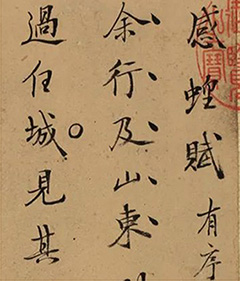 感蝗賦 有序
余行及山東
過任城見其